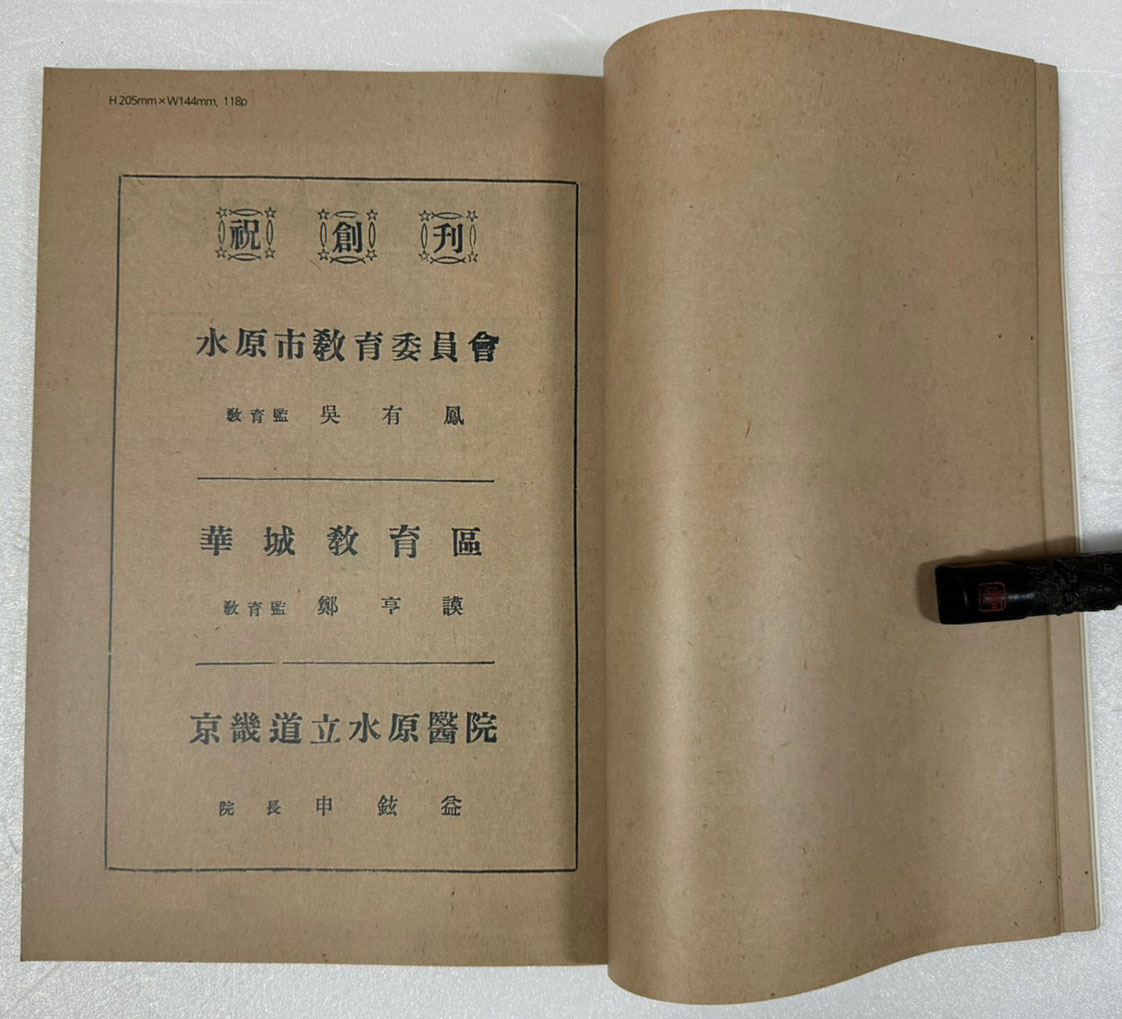 H 205mm×W144mm, 118p
祝 創 刊
水原市敎育委員會
敎育監 吳有鳳
華城敎育區
敎育監 鄭亨謨
京畿道立水原醫院
院長 申鉉益